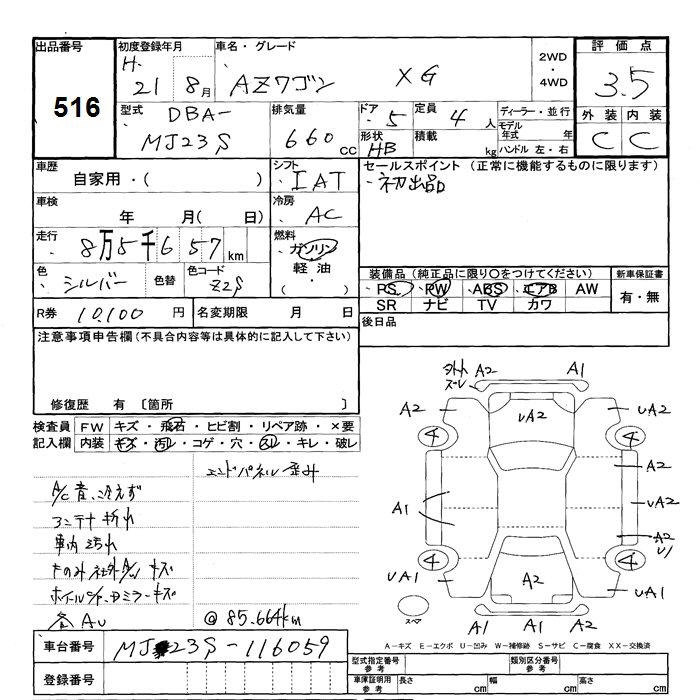 出品番号 初度登録年月 車名・グレード 2WD 評価点
516 H. 21年 8月 AZワゴン XG ・ 4WD 3.5
型式 DBA- 排気量 ドア 5 定員 4人 ディーラー・並行 外装 内装
MJ23S 660cc 形状 HB 積載 kg モデル年式 年 ハンドル 左・右 C C
車歴 シフト セールスポイント (正常に機能するものに限ります)
自家用・( ) IAT ・初出品
車検 冷房
年 月( 日) AC
走行 8万5千657km 燃料 ガソリン
軽油
( ・ )
色 シルバー 色替 色コード Z2S
装備品(純正品に限り○をつけてください) 新車保証書
・PS PW ABS エアB AW 有・無
SR ナビ TV カワ
R券 10,100円 名変期限 月 日 後日品
注意事項申告欄(不具合内容等は具体的に記入して下さい)
修復歴 有 〔箇所 〕
検査員 FW キズ・飛石・ヒビ割・リペア跡・×要
記入欄 内装 キズ・汚レ・コゲ・穴・スレ・キレ・破レ
エンドパネル歪み
A/C音、冷えず
アンテナ折れ
車内汚れ
キズ
キズ
各AU @85.664km
車台番号 MJ23S-116059
登録番号
A2 A1
A2 UA2 UA2
4 4
A2
A1 UA2
A2
U1
4 4
UA1 A2 UA1
A1 A1 A2
A-キズ E-エクボ U-凹み W-補修跡 S-サビ C-腐食 XX-交換済
型式指定番号 参考 類別区分番号 参考
車庫証明用 参考 長さ cm 幅 cm 高さ cm